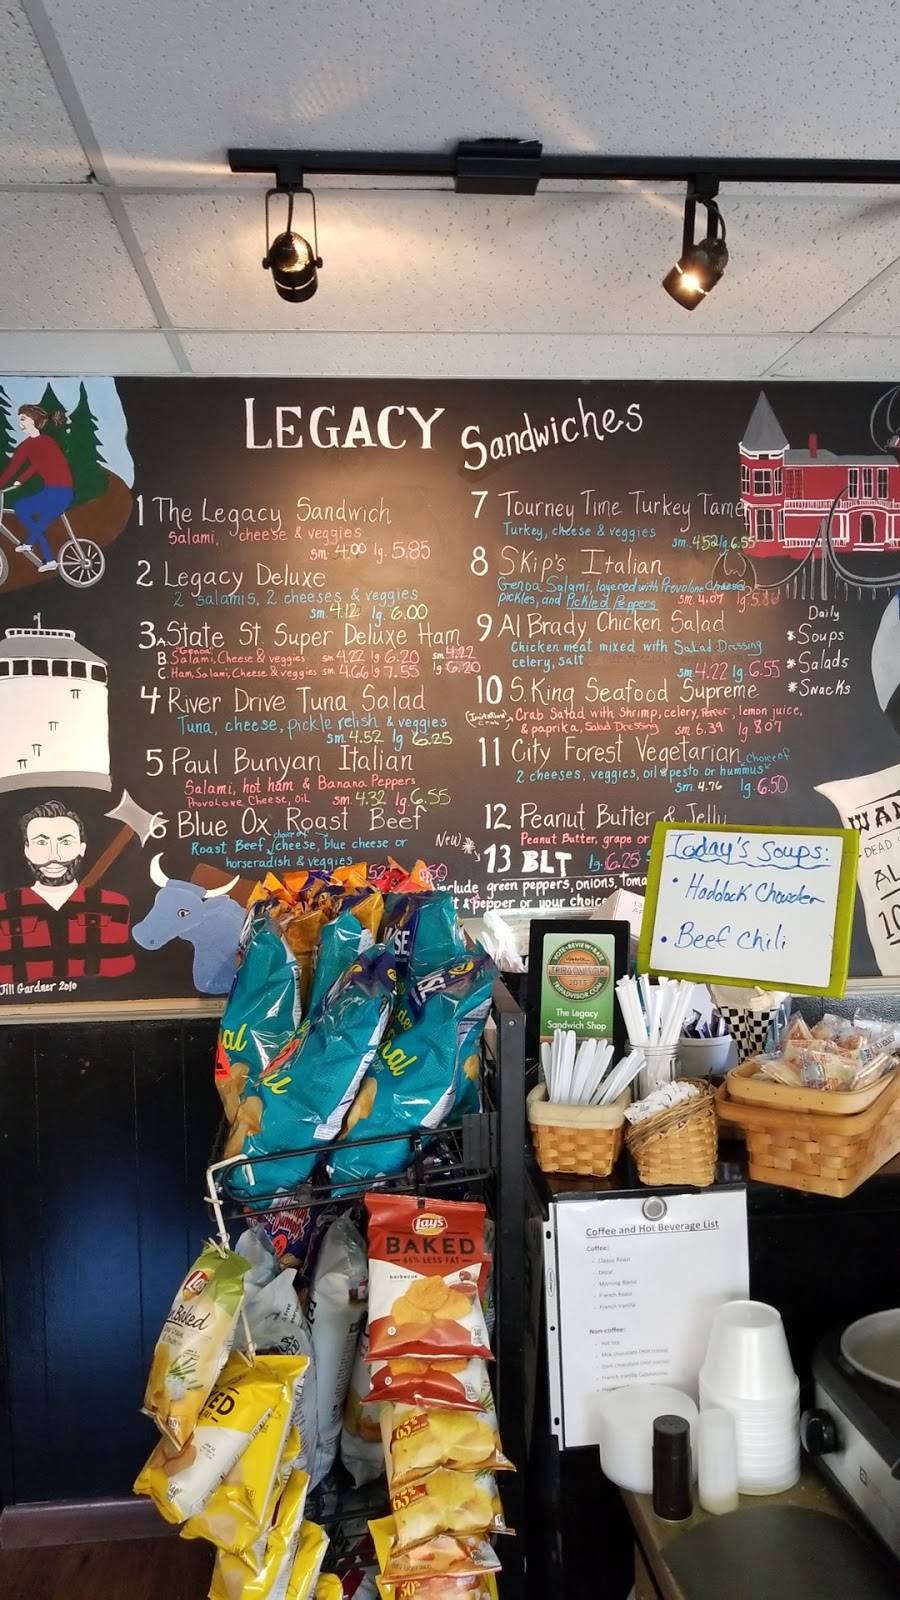 LEGACY Sandwiches
1 The Legacy Sandwich
Salami, cheese & veggies
sm 4.00 lg. 5.85
2 Legacy Deluxe
2 salamis, 2 cheeses & veggies
sm. 4.12 lg. 6.00
3 A. State St. Super Deluxe Ham
"Genoa" sm 4.22
B. Salami, Cheese & veggies sm 4.22 lg 6.20
lg 6.20
C. Ham, Salami, Cheese & veggies sm. 4.66 lg 7.55
4 River Drive Tuna Salad
Tuna, cheese, pickle relish & veggies
sm. 4.52 lg 6.25
5 Paul Bunyan Italian
Salami, hot ham & Banana Peppers
Provolone Cheese, Oil sm. 4.32 lg. 6.55
6 Blue Ox Roast Beef
choice of
Roast Beef, cheese, blue cheese or
horseradish & veggies
7 Tourney Time Turkey Tame
Turkey, cheese & veggies
sm. 4.52 lg. 6.55
8 Skip's Italian
Genoa Salami, layered with Provolone Cheese,
pickles, and Pickled Peppers sm. 4.07 lg
9 Al Brady Chicken Salad
Chicken meat mixed with Salad Dressing
celery, salt
sm. 4.22 lg. 6.55
10 S. King Seafood Supreme
(Imitation Crab) Crab Salad with Shrimp, celery, Pepper, lemon juice,
& paprika, Salad Dressing sm. 6.39 lg. 8.07
11 City Forest Vegetarian
choice of
2 cheeses, veggies, oil & pesto or hummus
sm. 4.76 lg. 6.50
12 Peanut Butter & Jelly
Peanut Butter, grape or
New
13 BLT lg. 6.25
include green peppers, onions, Toma
& pepper or your choice
Daily
* Soups
* Salads
* Snacks
WAN
DEAD
AL
10
Jill Gardner 2010
Today's Soups:
• Haddock Chowder
• Beef Chili
VOTE • REVIEW • RATE
TRIPADVISOR
2015
TRIPADVISOR.COM
The Legacy
Sandwich Shop
Coffee and Hot Beverage List
Coffee:
- Classic Roast
- Decaf
- Morning Blend
- French Roast
- French Vanilla
Non-coffee:
- Hot tea
- Milk chocolate (Hot cocoa)
- Dark chocolate (Hot cocoa)
- French Vanilla Cappuccino
Lay's
BAKED
65% LESS FAT
barbecue
Lay's
Baked
65%
65%
50%